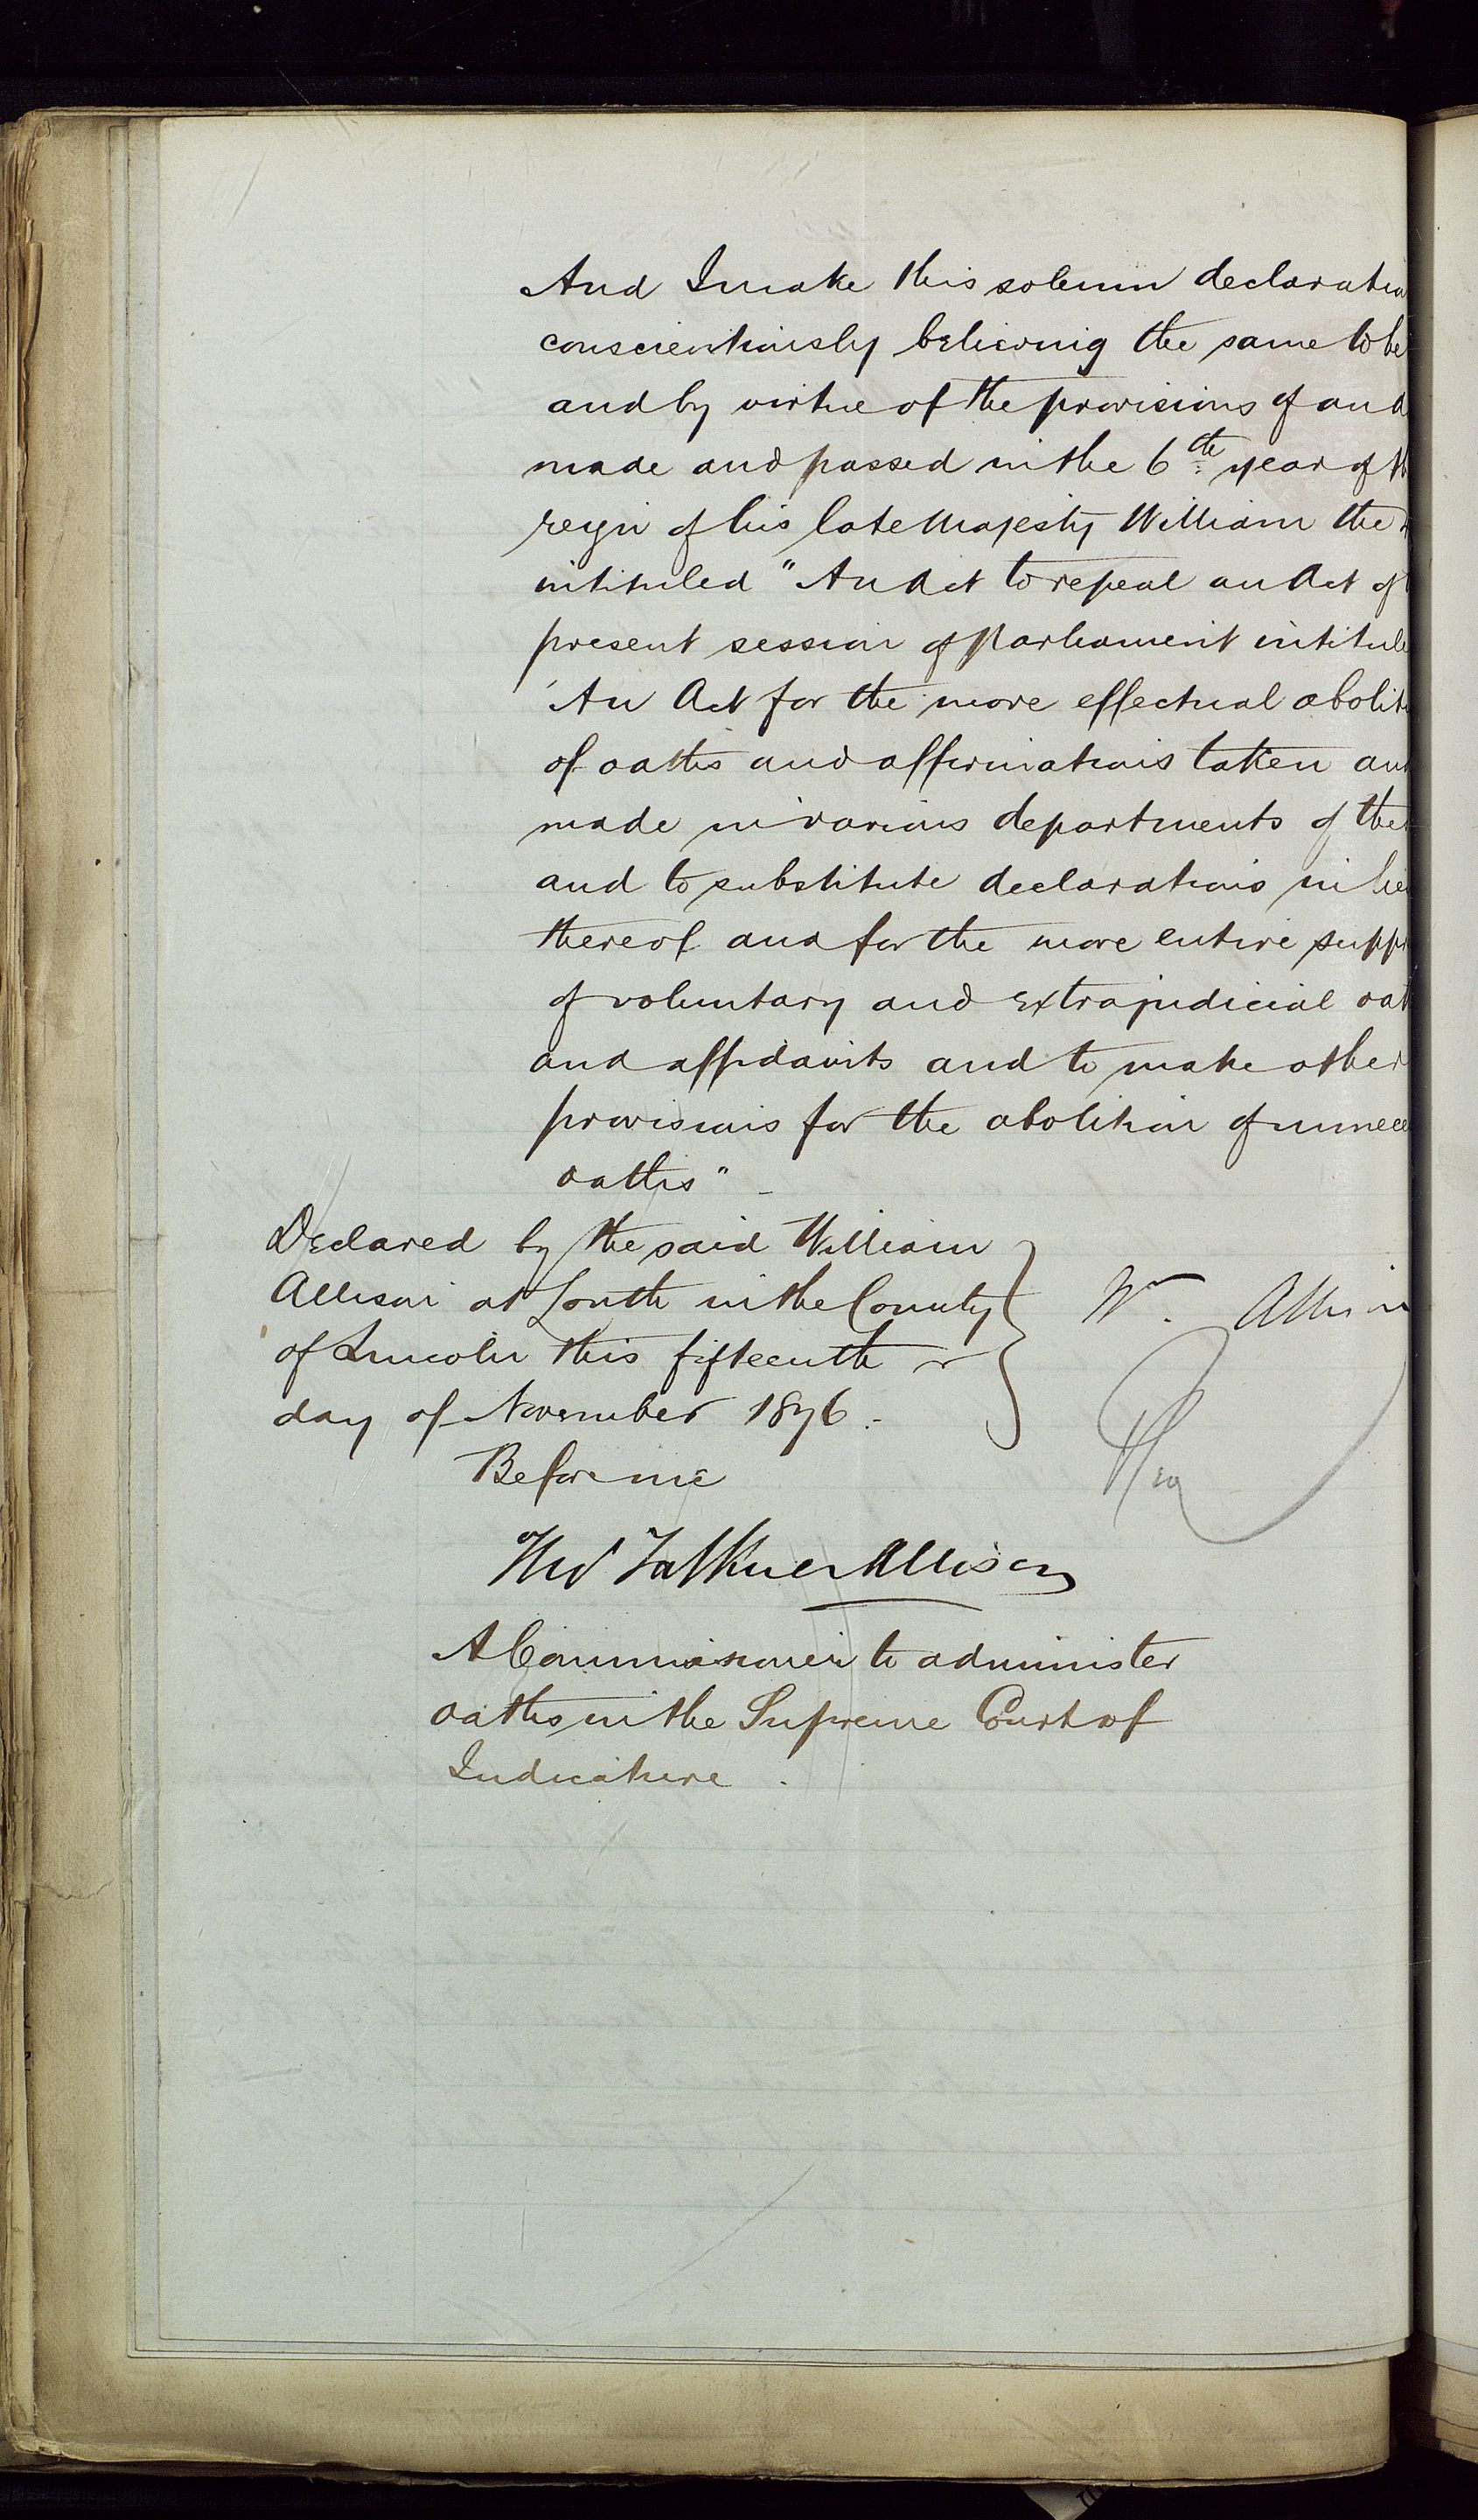 And I make this solemn declaratio
conscientiously believing the same to be
and by virtue of the provisions of an A
made and passed in the 6th year of th
reign of his late Majesty William the
intituled "An Act to repeal an Act of
present session of Parliament intitule
'An Act for the more effectual aboliti
of oaths and affirmations taken and
made in various departments of the
and to substitute declarations in lie
thereof and for the more entire suppr
of voluntary and extrajudicial oat
and affidavits and to make other
provisions for the abolition of unnece
oaths"
Declared by the said William
Allison at Louth in the County
of Lincoln this fifteenth
day of November 1876.
Wm. Allison
Before me
Thos Falkner Allison
A Commissioner to administer
oaths in the Supreme Court of
Judicature.